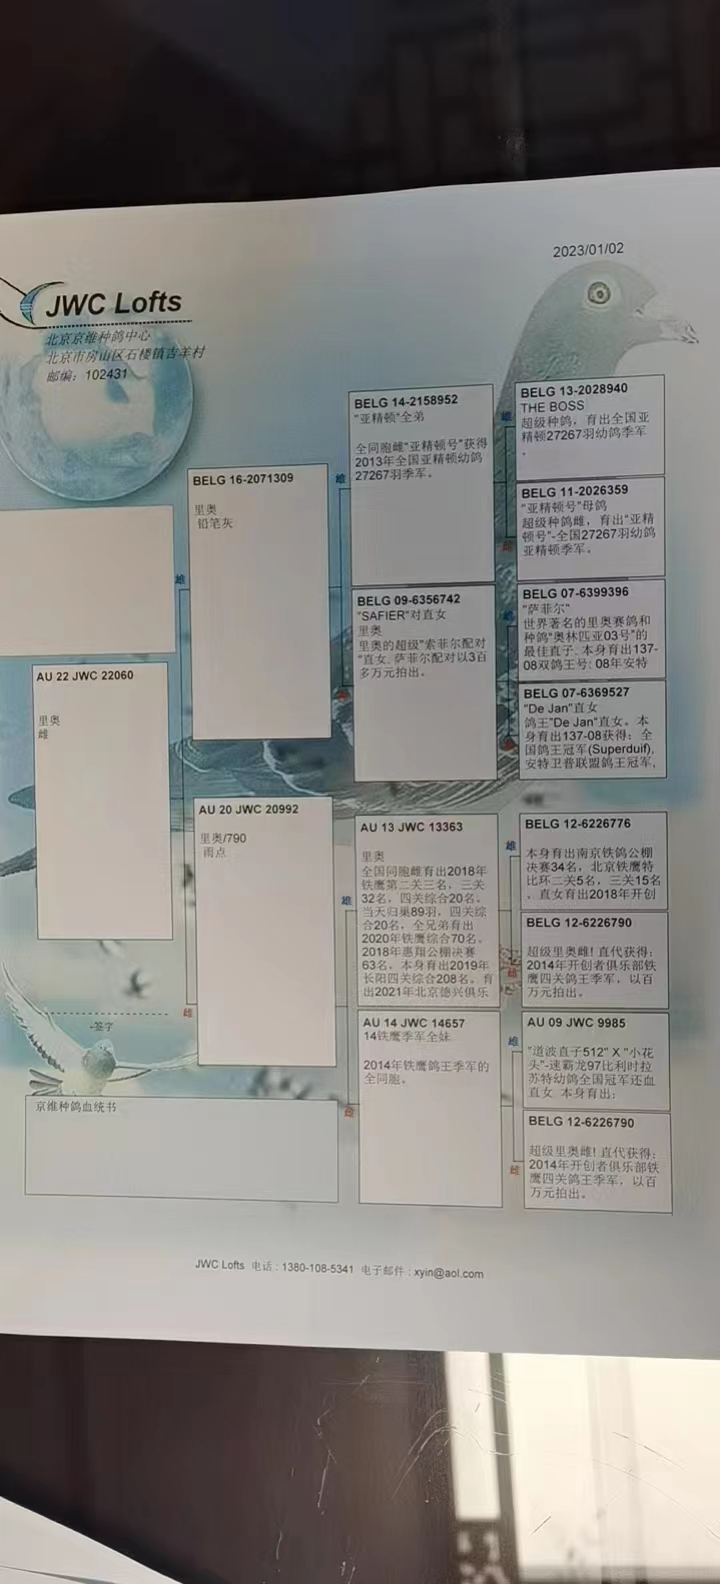 2023/01/02
JWC Lofts
北京京维种鸽中心
北京市房山区石楼镇吉羊村
邮编：102431
AU 22 JWC 22060
里奥
雌
BELG 16-2071309
里奥
铅笔灰
AU 20 JWC 20992
里奥/790
雨点
BELG 14-2158952
"亚精顿"全弟
全同胞雌"亚精顿号"获得
2013年全国亚精顿幼鸽
27267羽季军。
BELG 09-6356742
"SAFIER"对直女
里奥
里奥的超级"索菲尔配对
"直女. 萨菲尔配对以3百
多万元拍出。
AU 13 JWC 13363
里奥
全国同胞雌育出2018年
铁鹰第二关三名，三关
32名，四关综合20名。
当天归巢89羽，四关综
合20名，全兄弟育出
2020年铁鹰综合70名。
2018年惠翔公棚决赛
63名，本身育出2019年
长阳四关综合208名。育
出2021年北京德兴俱乐
AU 14 JWC 14657
14铁鹰季军全妹
2014年铁鹰鸽王季军的
全同胞。
BELG 13-2028940
THE BOSS
超级种鸽，育出全国亚
精顿27267羽幼鸽季军
。
BELG 11-2026359
"亚精顿号"母鸽
超级种鸽雌，育出"亚精
顿号"-全国27267羽幼鸽
亚精顿季军。
BELG 07-6399396
"萨菲尔"
世界著名的里奥赛鸽和
种鸽"奥林匹亚03号"的
最佳直子. 本身育出137-
08双鸽王号: 08年安特
BELG 07-6369527
"De Jan"直女
鸽王"De Jan"直女。本
身育出137-08获得：全
国鸽王冠军(Superduif),
安特卫普联盟鸽王冠军,
BELG 12-6226776
本身育出南京铁鸽公棚
决赛34名，北京铁鹰特
比环二关5名，三关15名
，直女育出2018年开创
BELG 12-6226790
超级里奥雌! 直代获得：
2014年开创者俱乐部铁
鹰四关鸽王季军，以百
万元拍出。
AU 09 JWC 9985
"道波直子512" X "小花
头"-速霸龙97比利时拉
苏特幼鸽全国冠军还血
直女 本身育出:
BELG 12-6226790
超级里奥雌! 直代获得：
2014年开创者俱乐部铁
鹰四关鸽王季军，以百
万元拍出。
雄
雌
雄
雌
雄
雌
雄
雄
雌
雄
雌
-签字
京维种鸽血统书
JWC Lofts 电话：1380-108-5341 电子邮件：xyin@aol.com